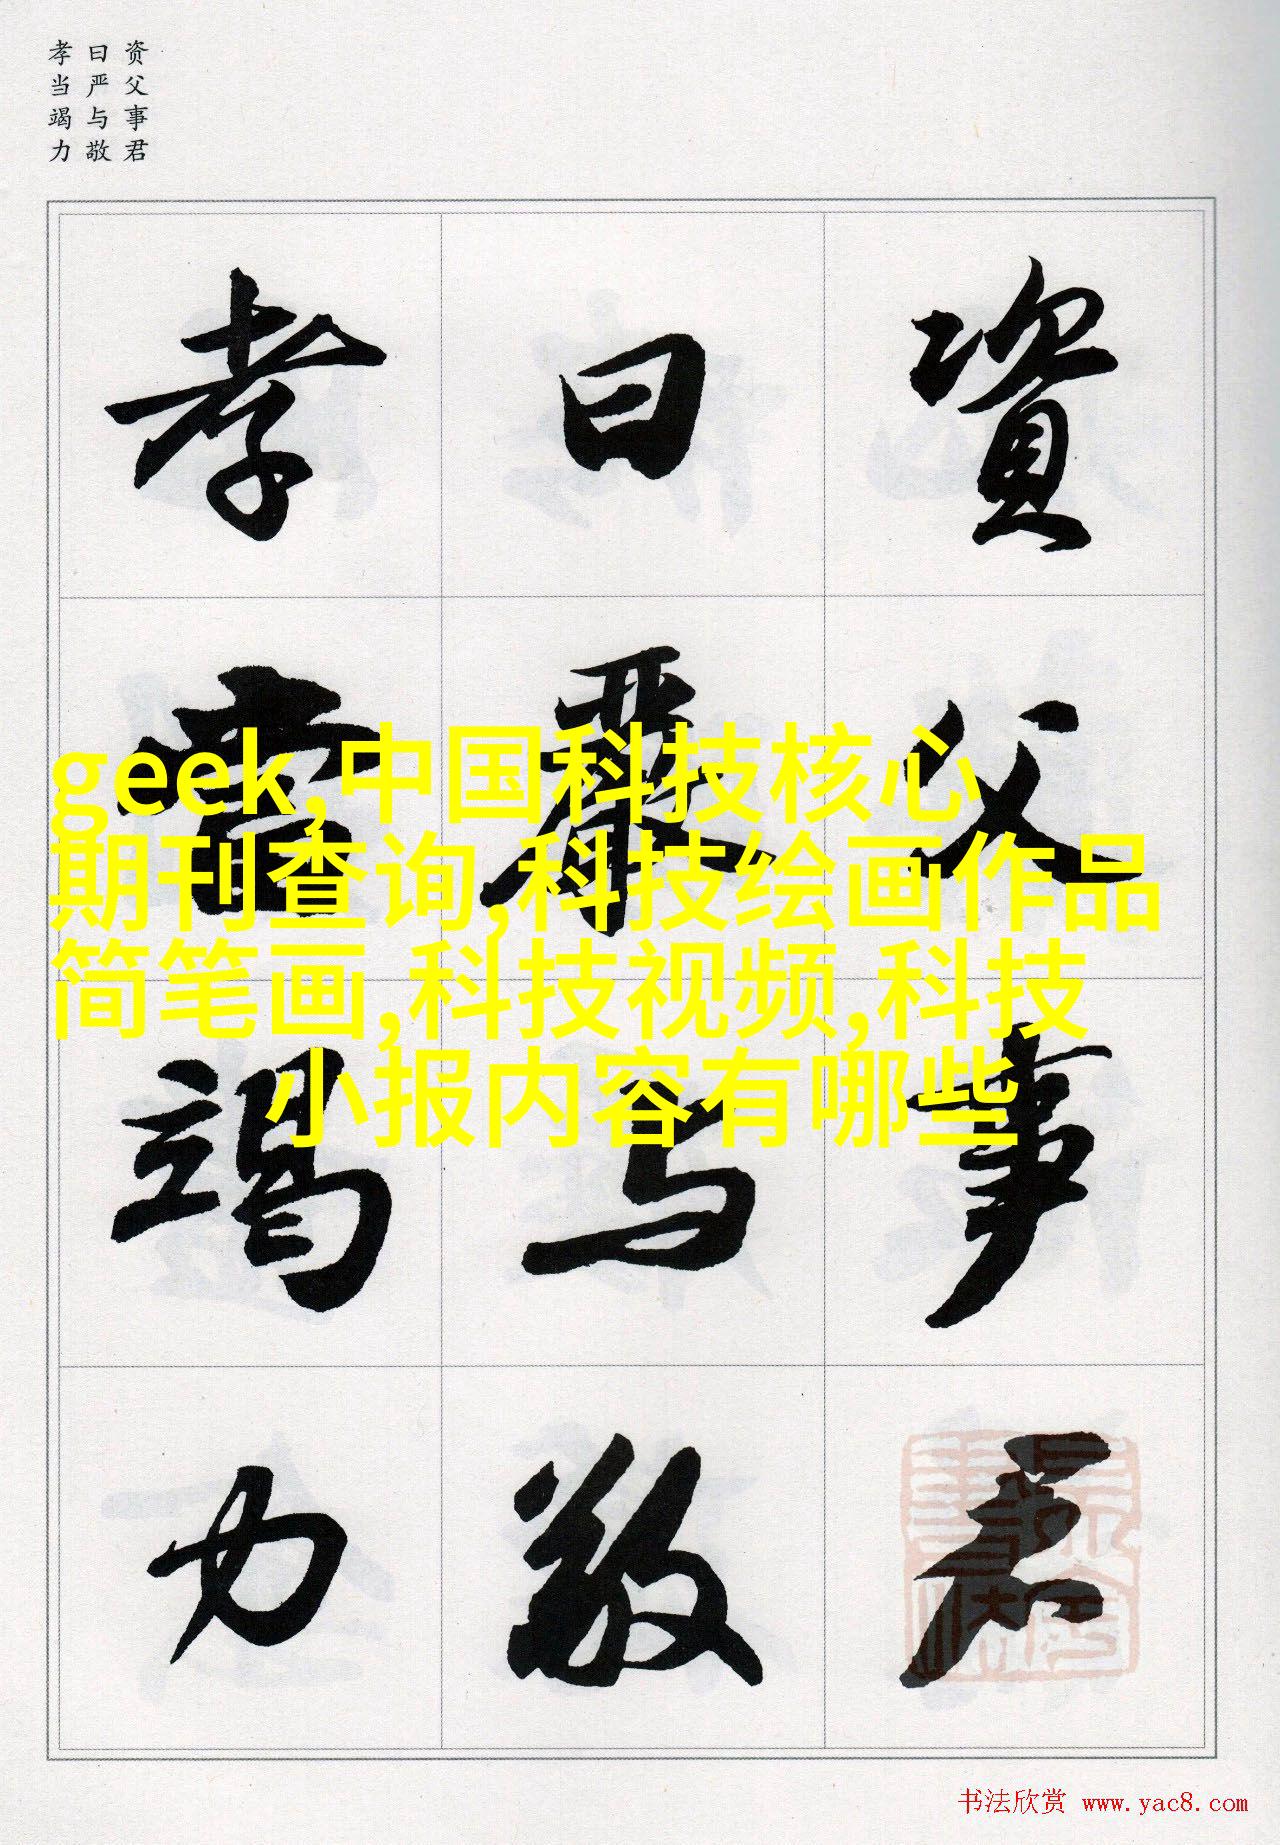 资父事君
曰严与敬
孝当竭力
資父事君
曰嚴与敬
孝當竭力
geek,中国科技核心
期刊查询,科技绘画作品
简笔画,科技视频,科技
小报内容有哪些
书法欣赏 www.yac8.com